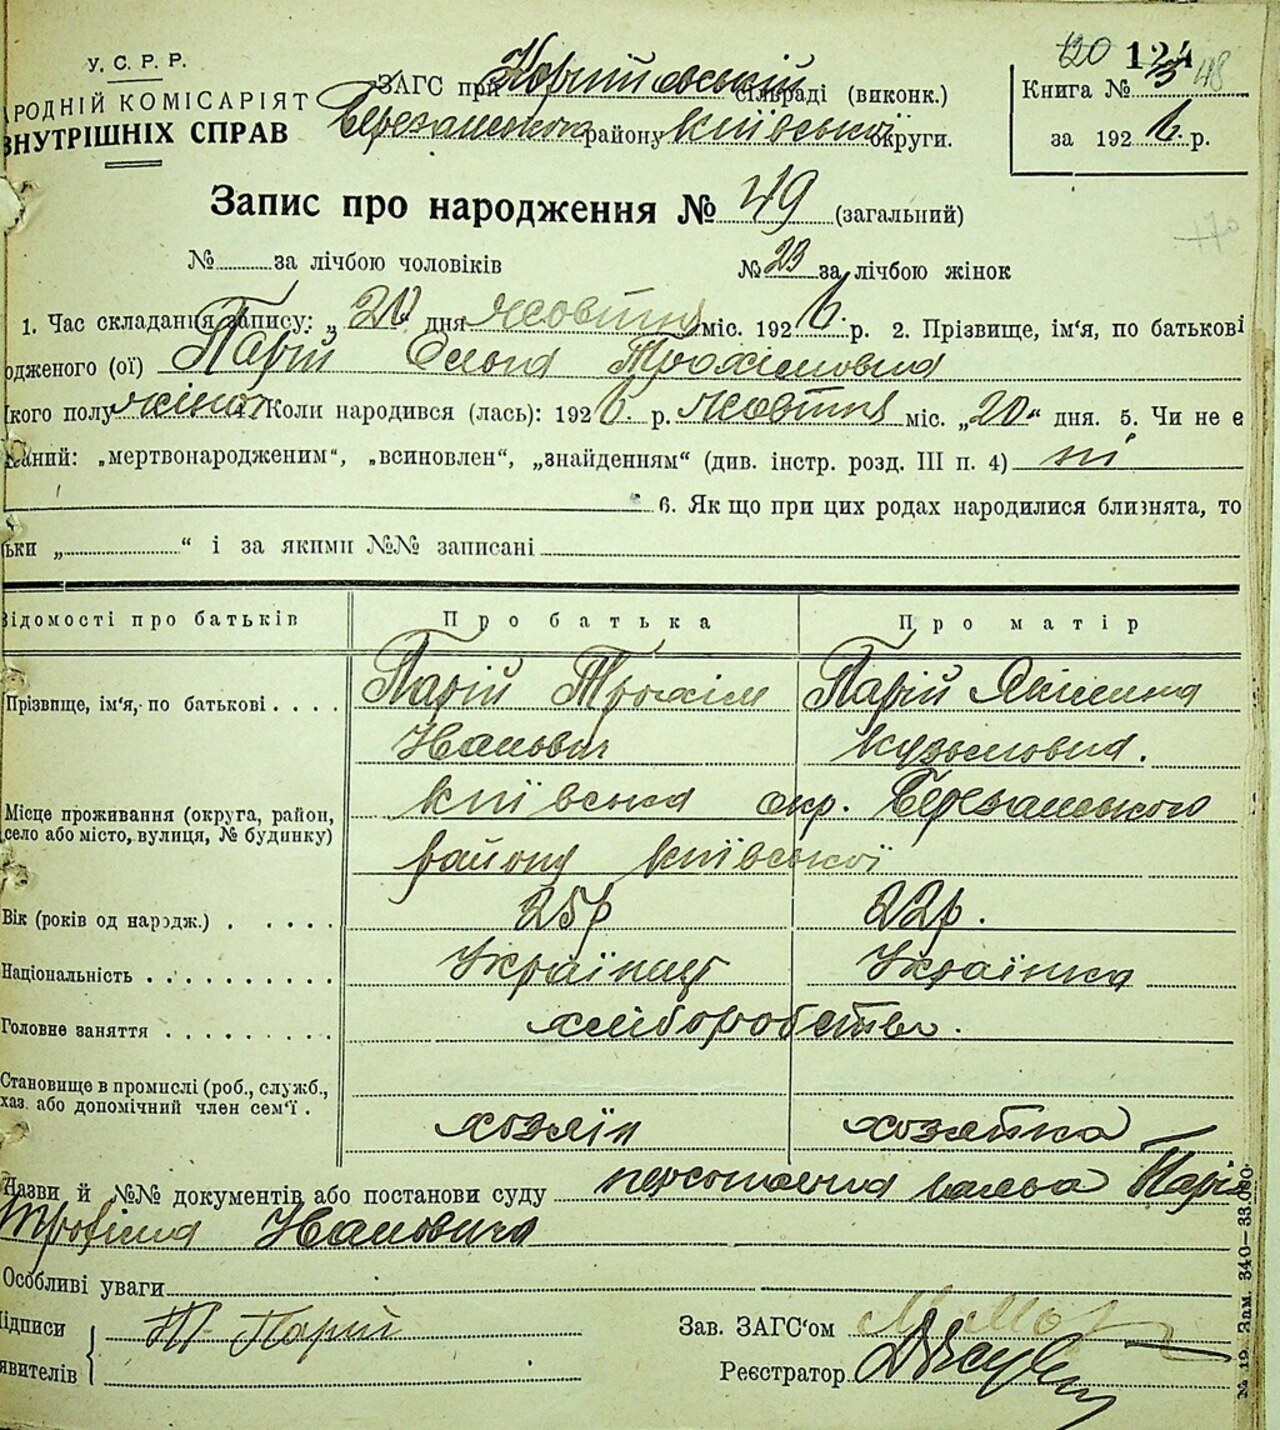 У. С. Р. Р.
РОДНІЙ КОМІСАРІЯТ
ВНУТРІШНІХ СПРАВ
120 124
ЗАГС при сільраді (виконк.)
Березанського району Київської округи.
Книга № 48
за 1926 р.
Запис про народження № 49 (загальний)
№ за лічбою чоловіків № 23 за лічбою жінок
1. Час складання запису: „20 дня Жовтня міс. 1926. р. 2. Прізвище, ім'я, по батькові
одженого (ої) Парій Ольга Трохимовна
кого полу жіноч Коли народився (лась): 1926. р. Жовтня міс. „20" дня. 5. Чи не є
заний: „мертвонародженим", „всиновлен", „знайденням" (див. інстр. розд. III п. 4) ні
6. Як що при цих родах народилися близнята, то
ьки „ " і за якими №№ записані
Відомості про батьків Про батька Про матір
Прізвище, ім'я, по батькові . . . . Парій Трохім Парій Якілина
Иванович Кузьмовна.
Місце проживання (округа, район, село або місто, вулиця, № будинку) Київська окр. Березанського
району Київської
Вік (років од народж.) . . . . . 25р 22р.
Національність . . . . . . . . . . Українец Українка
Головне заняття . . . . . . . . . хліборобство.
Становище в промислі (роб., служб.,
хаз. або допомічний член сем'ї . хозяїн хозяйка
Назви й №№ документів або постанови суду персональна заява Парія
Трофіма Ивановича
Особливі уваги
Підписи Т Парій
явителів
Зав. ЗАГС'ом
Реєстратор
№ 19. Зам. 340—33.000